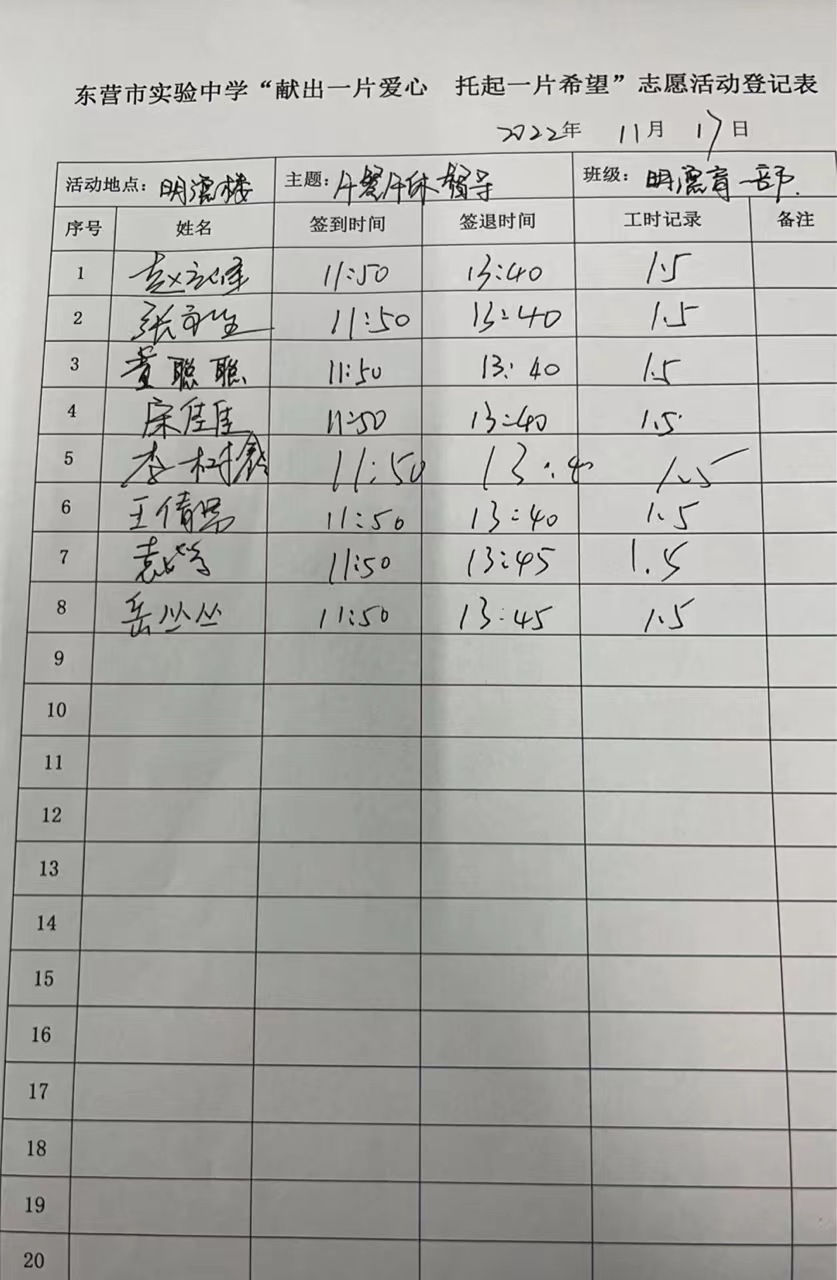 东营市实验中学“献出一片爱心 托起一片希望”志愿活动登记表
2022年 11月 17日
活动地点: 明德楼 主题: 午餐午休辅导 班级: 明德育一部
序号 姓名 签到时间 签退时间 工时记录 备注
1 11:50 13:40 1.5
2 11:50 13:40 1.5
3 黄聪聪 11:50 13:40 1.5
4 宋佳佳 11:50 13:40 1.5
5 李树鑫 11:50 13:40 1.5
6 王倩 11:50 13:40 1.5
7 袁 11:50 13:45 1.5
8 岳丛丛 11:50 13:45 1.5
9
10
11
12
13
14
15
16
17
18
19
20